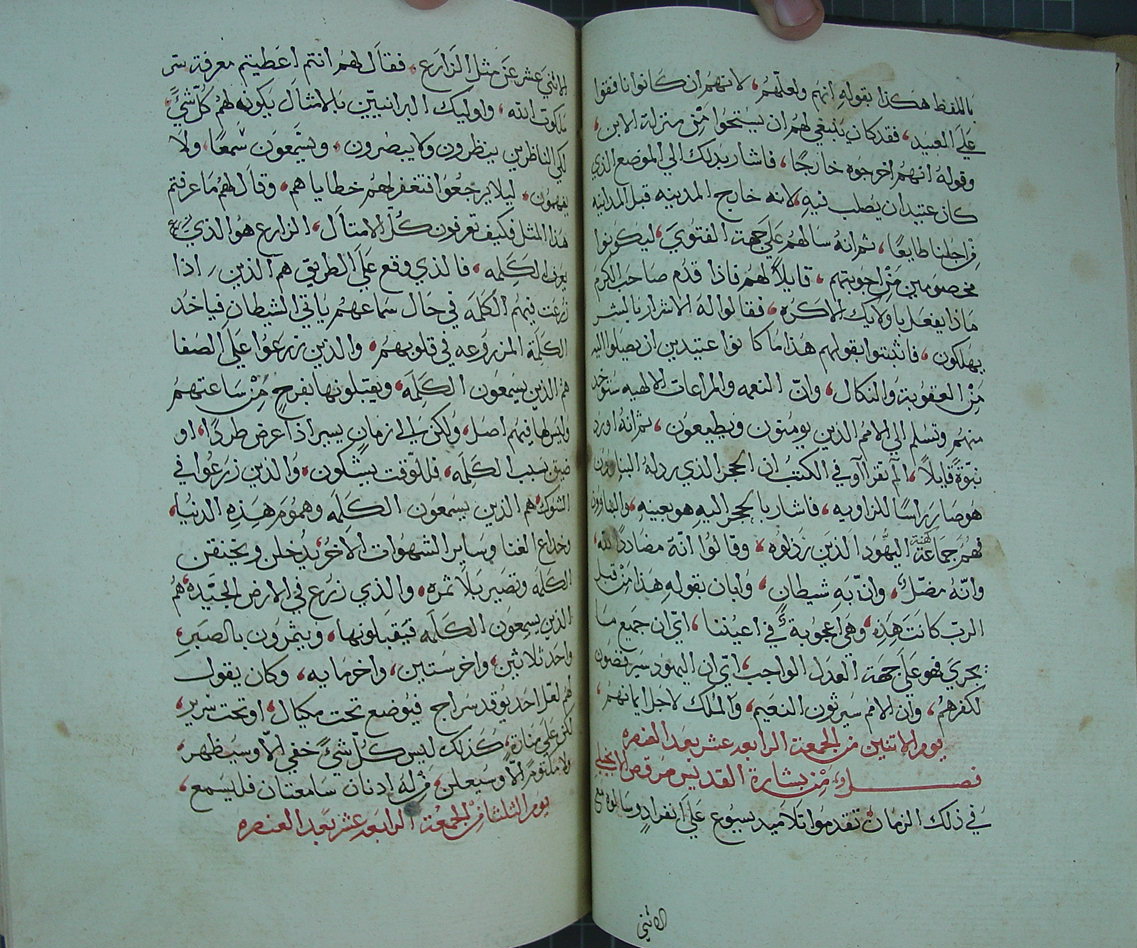 باللفظ هكذا بقوله انهم ولعلهم، لانهم ان كانوا نافقوا
على العبيد، فقد كان ينبغي لهم ان يستحوا من منزلة الابن،
وقوله انهم اخرجوه خارجًا، فاشار بذلك الى الموضع الذي
كان عتيدان يصلب فيه، لانه خارج المدينه قبل المدينه
من اجلنا طايعًا، ثم انه سالهم على جهة الفتوى، ليكونوا
مخصومين من اجوبتهم، قايلاً لهم فاذا قدم صاحب الكرم
ماذا يفعل باولايك الاكره، فقالوا له الاشرار بالشر
يهلكون، فاثبتوا بقولهم هذا ما كانوا عتيدين ان يصلوا اليه
من العقوبة والنكال، وانّ النعمه والمراعات الالهيه ستوخد
منهم وتسلم الى الامم الذين يومنون ويطيعون، ثم انهُ اورد
نبوّة قايلاً، الم تقراوا في الكتب ان الحجر الذي رذله البناوون
هو صار راسًا للزاويه، فاشار بالحجر اليه هو بعينه، والبناوون
فهم جماعة كهنة اليهود الذين رذلوه، وقالوا انهُ مضاددًا لله،
وانّه مضلّ، وان به شيطان، ولبان بقوله هذا من قبل
الرب كانت هذه، وهي اعجوبةٌ في اعيننا، اي ان جميع ما
يجري فهو على جهة العدل الواجب، اي ان اليهود سيرفضون
لكفرهم، وان الامم سيرثون النعيم، والملك لاجل ايمانهم،
يوم الاتنين من الجمعة الرابعه عشر بعد العنصره
فصل من بشارة القديس مرقص الانجيلي
في ذلك الزمان تقدموا تلاميد يسوع على انفرادٍ وسالوه مع
الاثني
بلاثني عشر عن مثل الزارع، فقال لهم انتم اعطيتم معرفة سر
ملكوت الله، واوليك البرانيّين بالامثال يكون لهم كل شيءٍ،
لكي الناظرين ينظرون ولا يبصرون، ويسمعون سمعًا، ولا
يفهمون، ليلا يرجعوا فتغفر لهم خطاياهم، وقال لهم ما عرفتم
هذا المثل فكيف تعرفون كُلّ الامتال، الزارع هو الذي يزرع
يزرع الكلمه، فالذي وقع على الطريق هم الذين، اذا
زرعت فيهم الكلمه في حال سماعهم ياتي الشيطان فياخد
الكلمة المزروعه في قلوبهم، والذين زرعوا على الصفا
هم الذين يسمعون الكلمه، ويقبلونها بفرحٍ من ساعتهم
وليس لها فيهم اصل، ولكن الى زمانٍ يسير اذا عرض طردًا، او
ضيق بسبب الكلمه، فللوقت يشكون، والدين زرعوا في
الشوك هم الذين يسمعون الكلمه وهموم هذه الدنيا،
وخداع الغنا وساير الشهوات الاخر، يدخلن ويخنقن
الكلمه وتصير بلا ثمره، والذي زرع في الارض الجيّده، هُم
الذين يسمعون الكلمه فيتقبلونها، ويثمرون بالصبر،
واحد ثلاثين، واخر ستين، واخر مايه، وكان يقول
لهم لعل احد يوقد سراج فيوضع تحت مكيال، او تحت سرير،
لكن على مناره، كذلك ليس كل شيءٍ خفي الّا وسيظهر،
ولا مكتومًا الّا وسيعلن، من له ادنان سامعتان فليسمع،
يوم الثلثا من الجمعة الرابعه عشر بعد العنصره